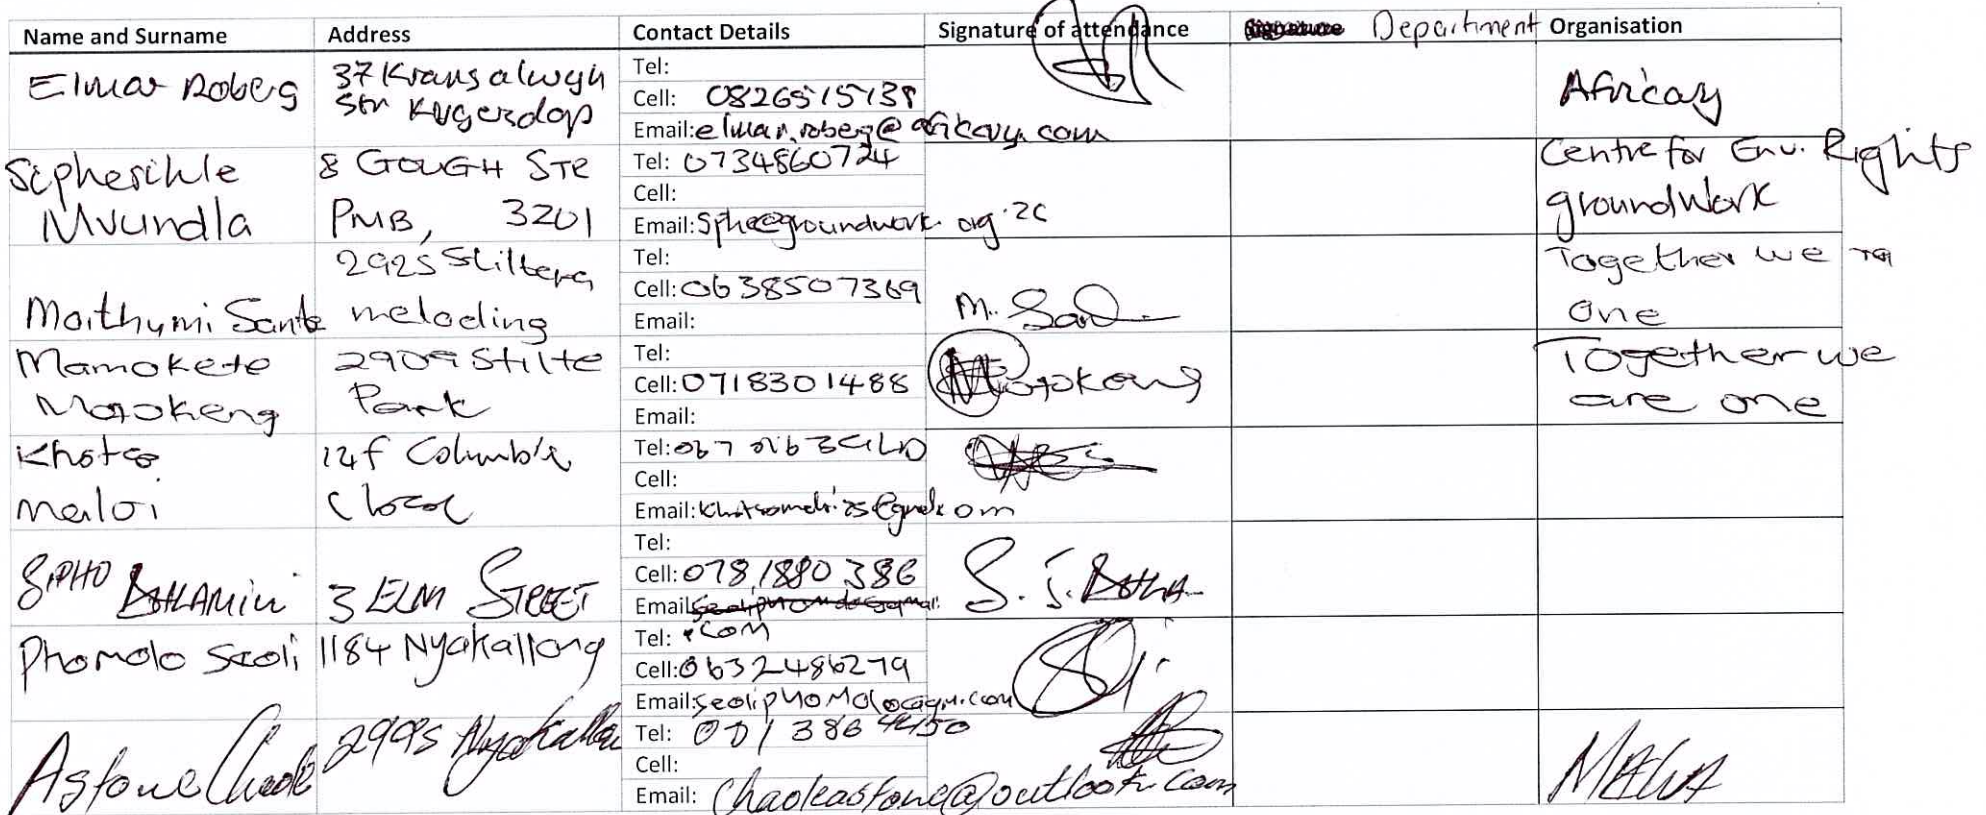 Name and Surname Address Contact Details Signature of attendance Department Organisation
Elmar Roberg 37 Kransalwyn Str Krugersdorp Tel:
Cell: 0826515139
Email: elmar.roberg@africary.com Africary
Siphesihle Mvundla 8 GOUGH STR PMB, 3201 Tel: 0734860724
Cell:
Email: Sphe@groundwork.org.za Centre for Env. Rights groundWork
Moithumi Santo 2925 Stiltepa meloding Tel:
Cell: 0638507369
Email: M. Together we one
Mamokete Mojokeng 2909 Stilte Park Tel:
Cell: 0718301488
Email: Mojokeng Together we are one
Khotso Meiloi 12f Columbia Tel: 067
Cell:
Email:
SIPHO DHLAMINI 3 ELM STREET Tel:
Cell: 078 1880 386
Email: S. J.
Phomolo Seoli 1184 Nyakallong Tel: .com
Cell: 0632486279
Email: seoliphomolo@gm.com
Astone Chaole 2995 Nyakallong Tel: 071 386 4450
Cell:
Email: Chaoleastone@outlook.com